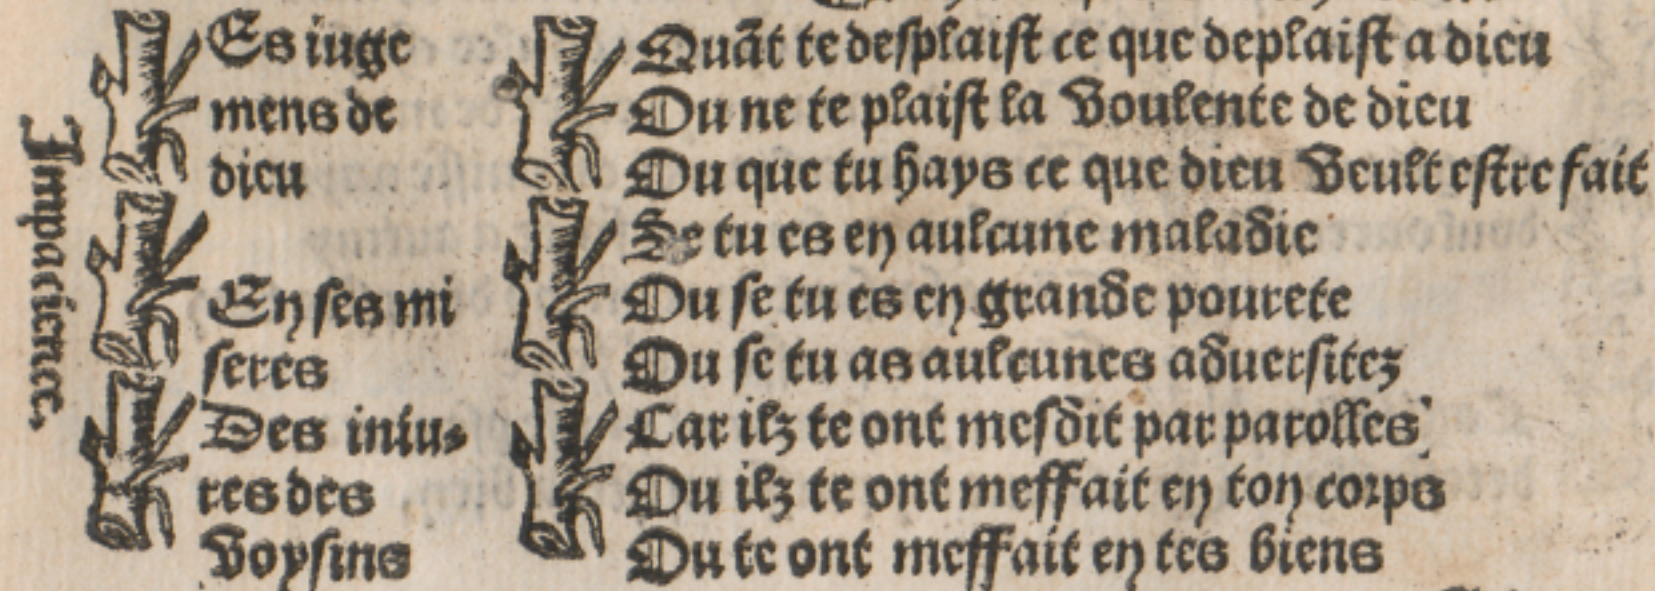 Impacience.
Es iuge
mens de
dieu
En ses mi
seres
Des iniu-
res des
voysins
Quãt te desplaist ce que deplaist a dieu
Ou ne te plaist la voulente de dieu
Ou que tu hays ce que dieu veult estre fait
Se tu es en aulcune maladie
Ou se tu es en grande pourete
Ou se tu as aulcunes aduersitez
Car ilz te ont mesdit par parolles
Ou ilz te ont meffait en ton corps
Ou te ont meffait en tes biens